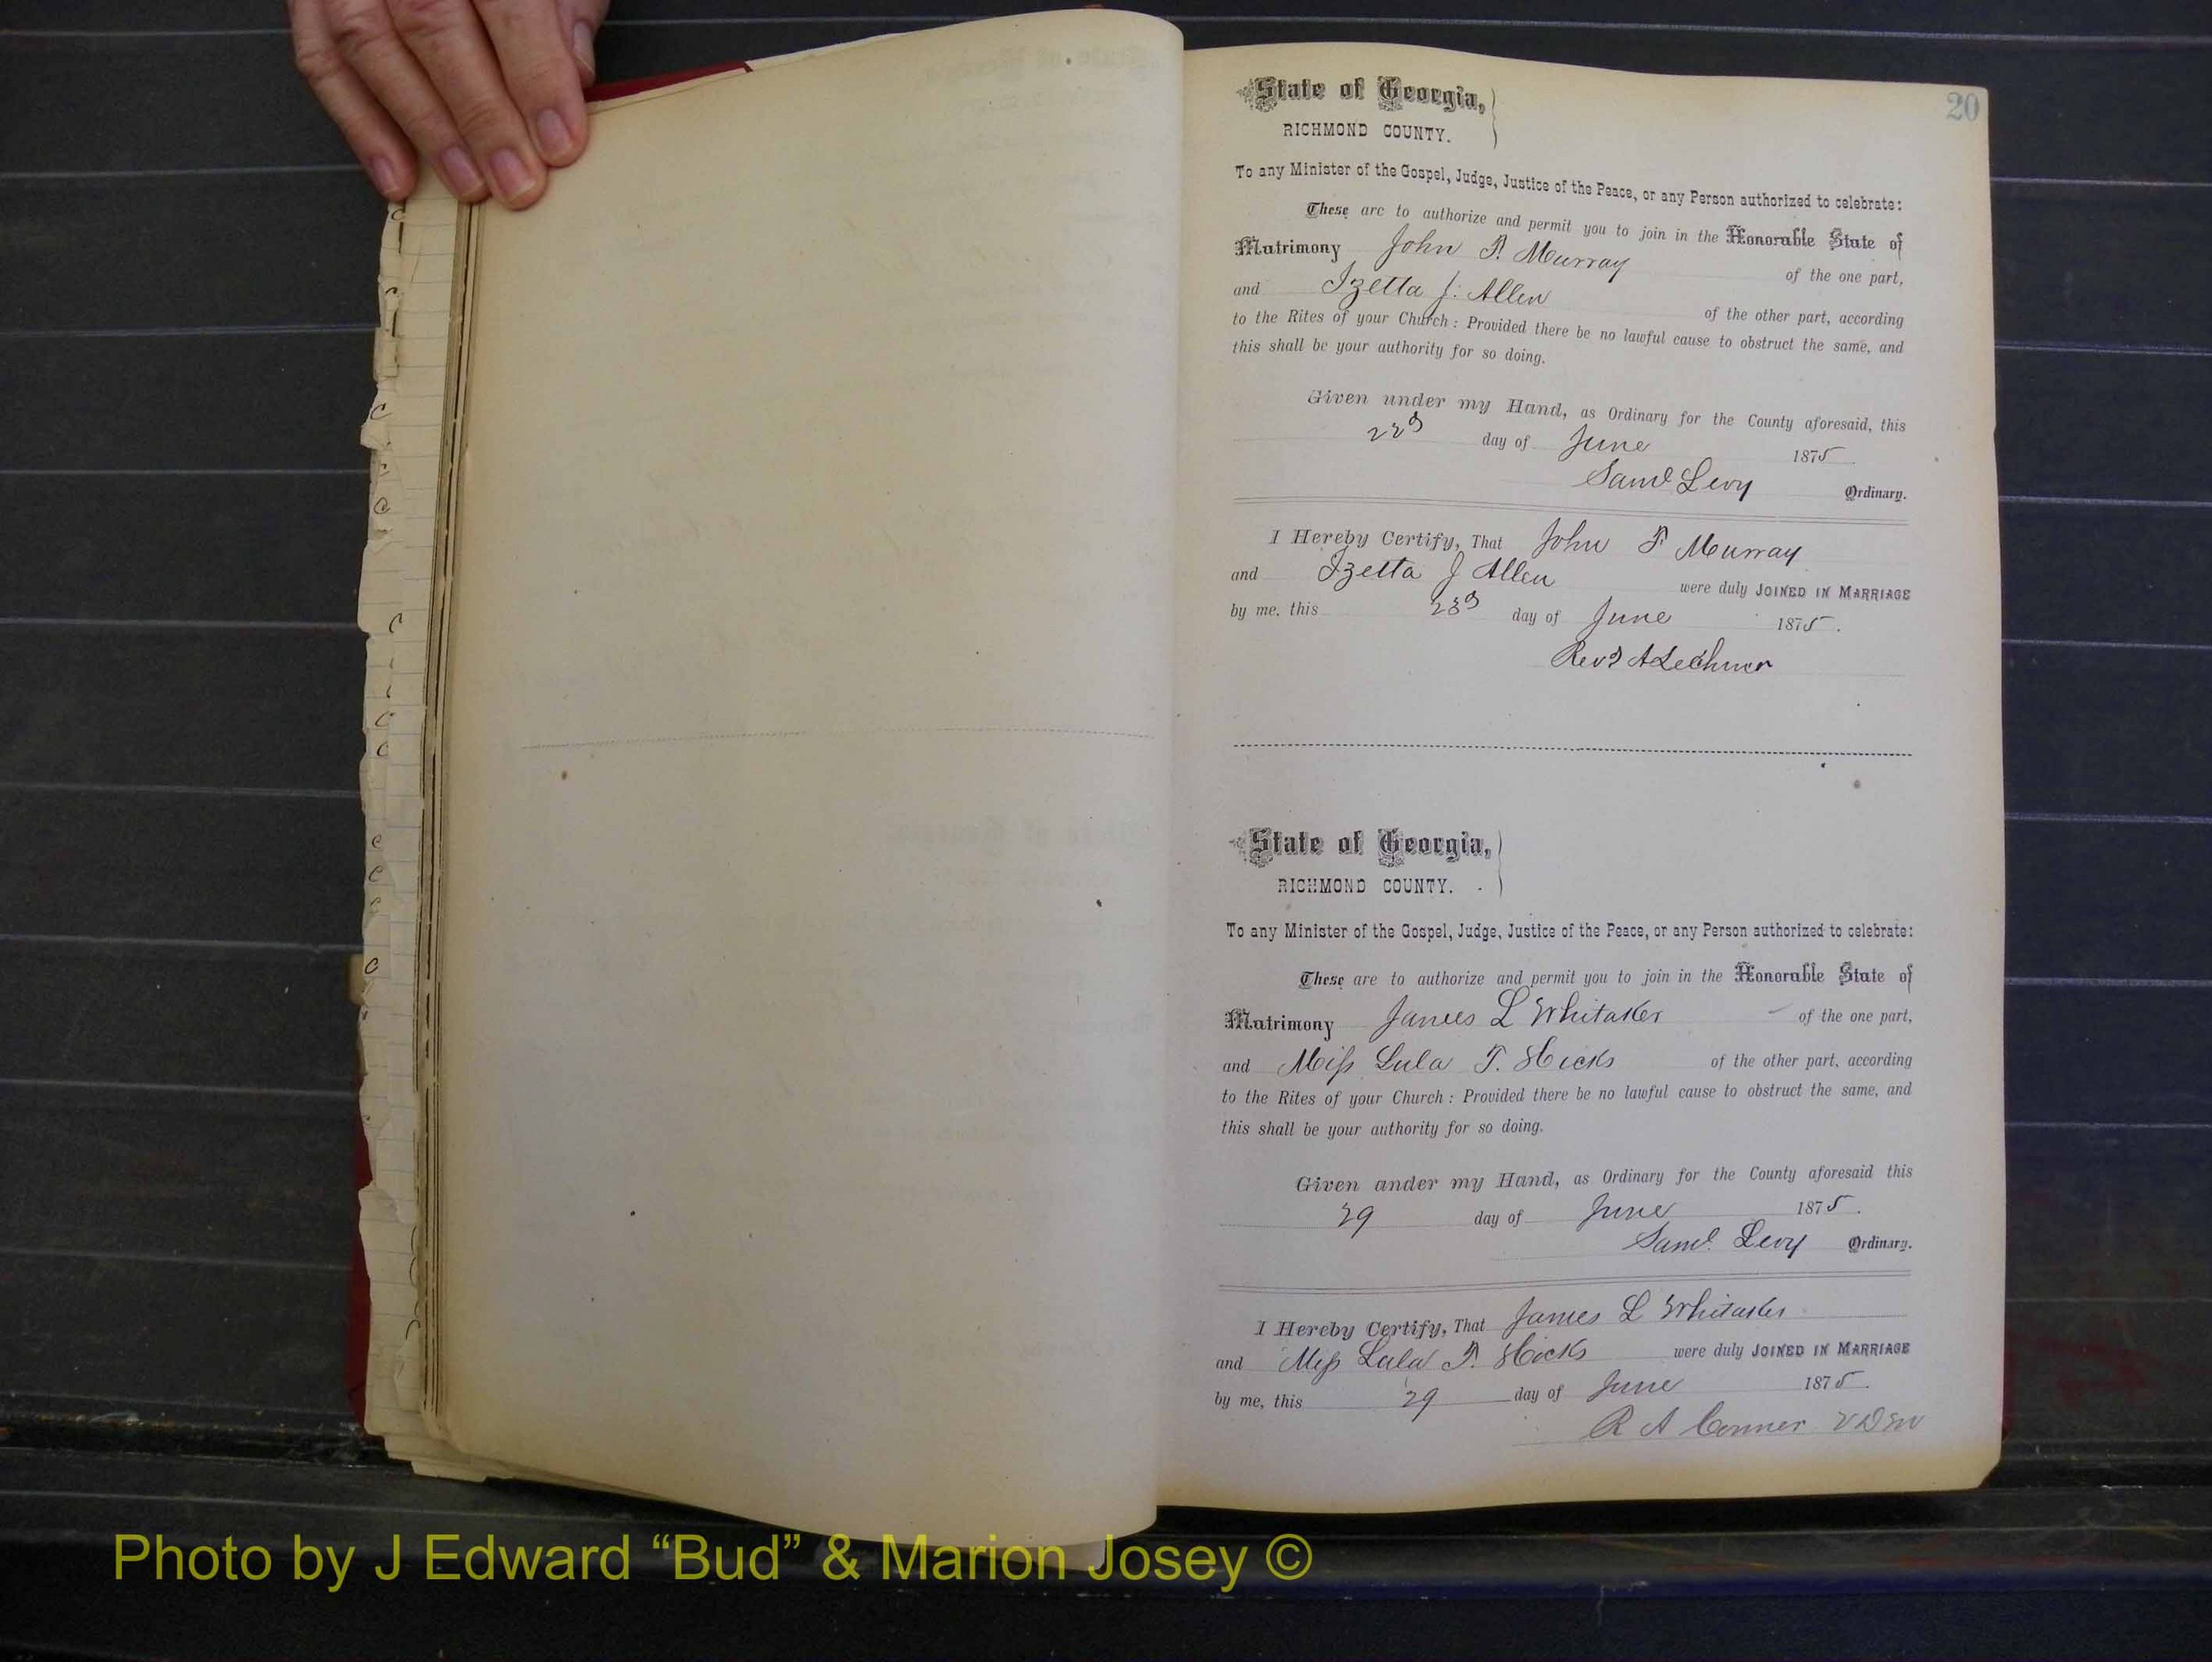 20
State of Georgia,
RICHMOND COUNTY.
To any Minister of the Gospel, Judge, Justice of the Peace, or any Person authorized to celebrate:
These are to authorize and permit you to join in the Honorable State of
Matrimony John P. Murray of the one part,
and Izetta J. Allen of the other part, according
to the Rites of your Church: Provided there be no lawful cause to obstruct the same, and
this shall be your authority for so doing.
Given under my Hand, as Ordinary for the County aforesaid, this
day of June 1875
Saml Levy Ordinary.
I Hereby Certify, That John P Murray
and Izetta J Allen were duly JOINED IN MARRIAGE
by me, this 23d day of June 1875.
Revd A Lechner
State of Georgia,
RICHMOND COUNTY.
To any Minister of the Gospel, Judge, Justice of the Peace, or any Person authorized to celebrate:
These are to authorize and permit you to join in the Honorable State of
Matrimony James L Whitaker of the one part,
and Miss Lula T. Hicks of the other part, according
to the Rites of your Church: Provided there be no lawful cause to obstruct the same, and
this shall be your authority for so doing.
Given under my Hand, as Ordinary for the County aforesaid this
29 day of June 1875.
Saml. Levy Ordinary.
I Hereby Certify, That James L Whitaker
and Miss Lula T. Hicks were duly JOINED IN MARRIAGE
by me, this 29 day of June 1875.
R A Conner VDM
Photo by J Edward “Bud” & Marion Josey ©